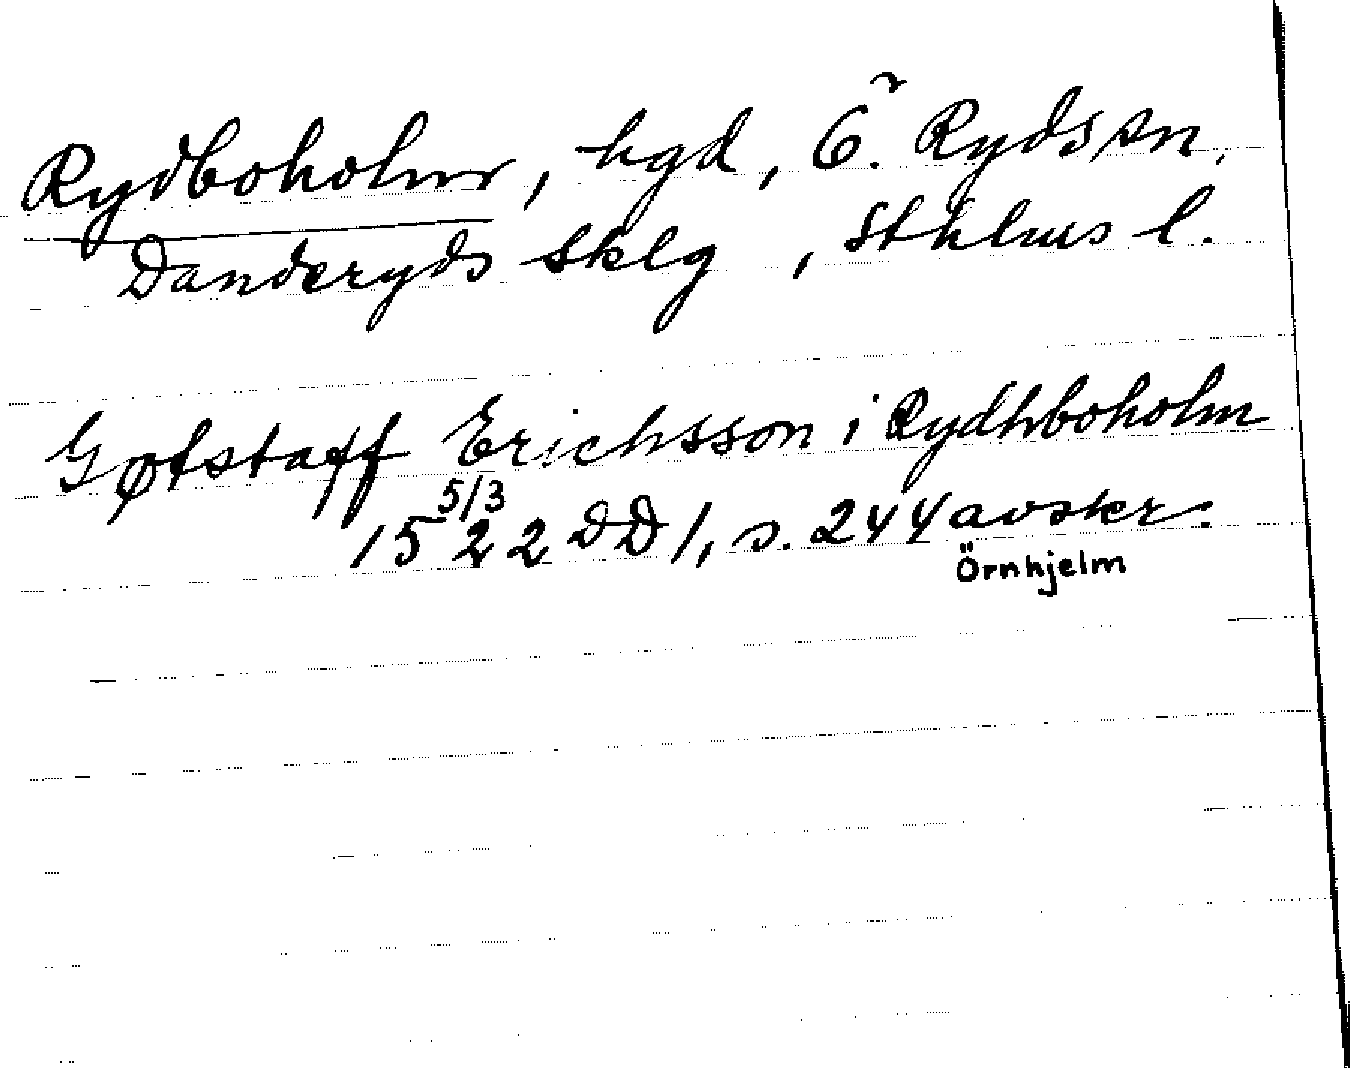 Rydboholm, hgd, Ö. Ryds sn,
Danderyds sklg, Sthlms l.
Gøtstaff Erichsson i Rydhboholm
5/3
1522 DD 1, s. 244 avskr.
Örnhjelm